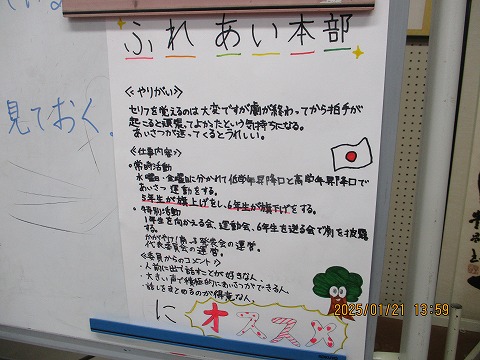 ふれあい本部
≪やりがい≫
セリフを覚えるのは大変ですが劇が終わってから拍手が
起こると頑張ってよかったという気持ちになる。
あいさつが返ってくるとうれしい。
≪仕事内容≫
・常時活動
水曜日・金曜日に分かれて低学年昇降口と高学年昇降口で
あいさつ運動をする。
5年生が旗上げをし、6年生が旗下げをする。
・特別活動
1年生を向かえる会、運動会、6年生を送る会で劇を披露
する。
発表会の運営。
代表委員会の運営。
≪委員からのコメント≫
・人前に出て話すことが好きな人、
・大きい声で積極的にあいさつができる人、
・話しをまとめるのが得意な人、
に オススメ
見ておく。
2025/01/21 13:59